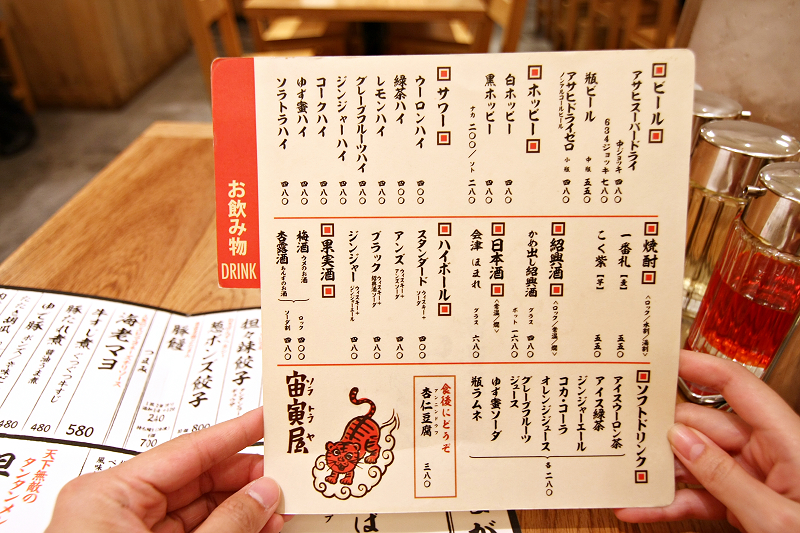 お飲み物
DRINK
ビール
アサヒスーパードライ
中ジョッキ 四八〇
634ジョッキ 七八〇
瓶ビール 中瓶 五五〇
アサヒドライゼロ 小瓶 四八〇
ノンアルコールビール
ホッピー
白ホッピー 四八〇
黒ホッピー 四八〇
ナカ 二〇〇/ソト 二八〇
サワー
ウーロンハイ 四〇〇
緑茶ハイ 四〇〇
レモンハイ 四八〇
グレープフルーツハイ 四八〇
ジンジャーハイ 四八〇
コークハイ 四八〇
ゆず蜜ハイ 四八〇
ソラトラハイ 四八〇
焼酎
〈ロック/水割/湯割〉
一番札【麦】 五五〇
こく紫【芋】 五五〇
紹興酒
〈ロック/常温/燗〉
かめ出し紹興酒 グラス 四八〇
ボット 一六八〇
日本酒
〈常温/燗〉
会津ほまれ グラス 六八〇
ハイボール
スタンダード ウィスキー+ソーダ 四〇〇
アンズ ウィスキー+アンズソーダ 四八〇
ブラック ウィスキー+紹興酒ソーダ 四八〇
ジンジャー ウィスキー+ジンジャーエール 四八〇
果実酒
梅酒 ウメのお酒
杏露酒 あんずのお酒
ロック 四八〇
ソーダ割 四八〇
ソフトドリンク
アイスウーロン茶
アイス緑茶
ジンジャーエール
コカ・コーラ
オレンジジュース
グレープフルーツ
ジュース
ゆず蜜ソーダ
瓶ラムネ
各 二八〇
食後にどうぞ
アンニンドウフ
杏仁豆腐
三八〇
ソラトラヤ
宙寅屋
担々辣餃子
ポンズ餃子
800
豚饅
海老マヨ
牛すじ煮 580
豚たれ煮 480
ゆで豚 480
天下無敵の
タンタンメン